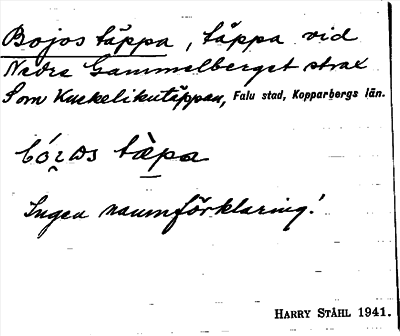 Bojos täppa, täppa vid
Nedre Gammelberget strax
Som Kuckelikutäppan, Falu stad, Kopparbergs län.
tæpa
Ingen namnförklaring!
HARRY STÅHL 1941.